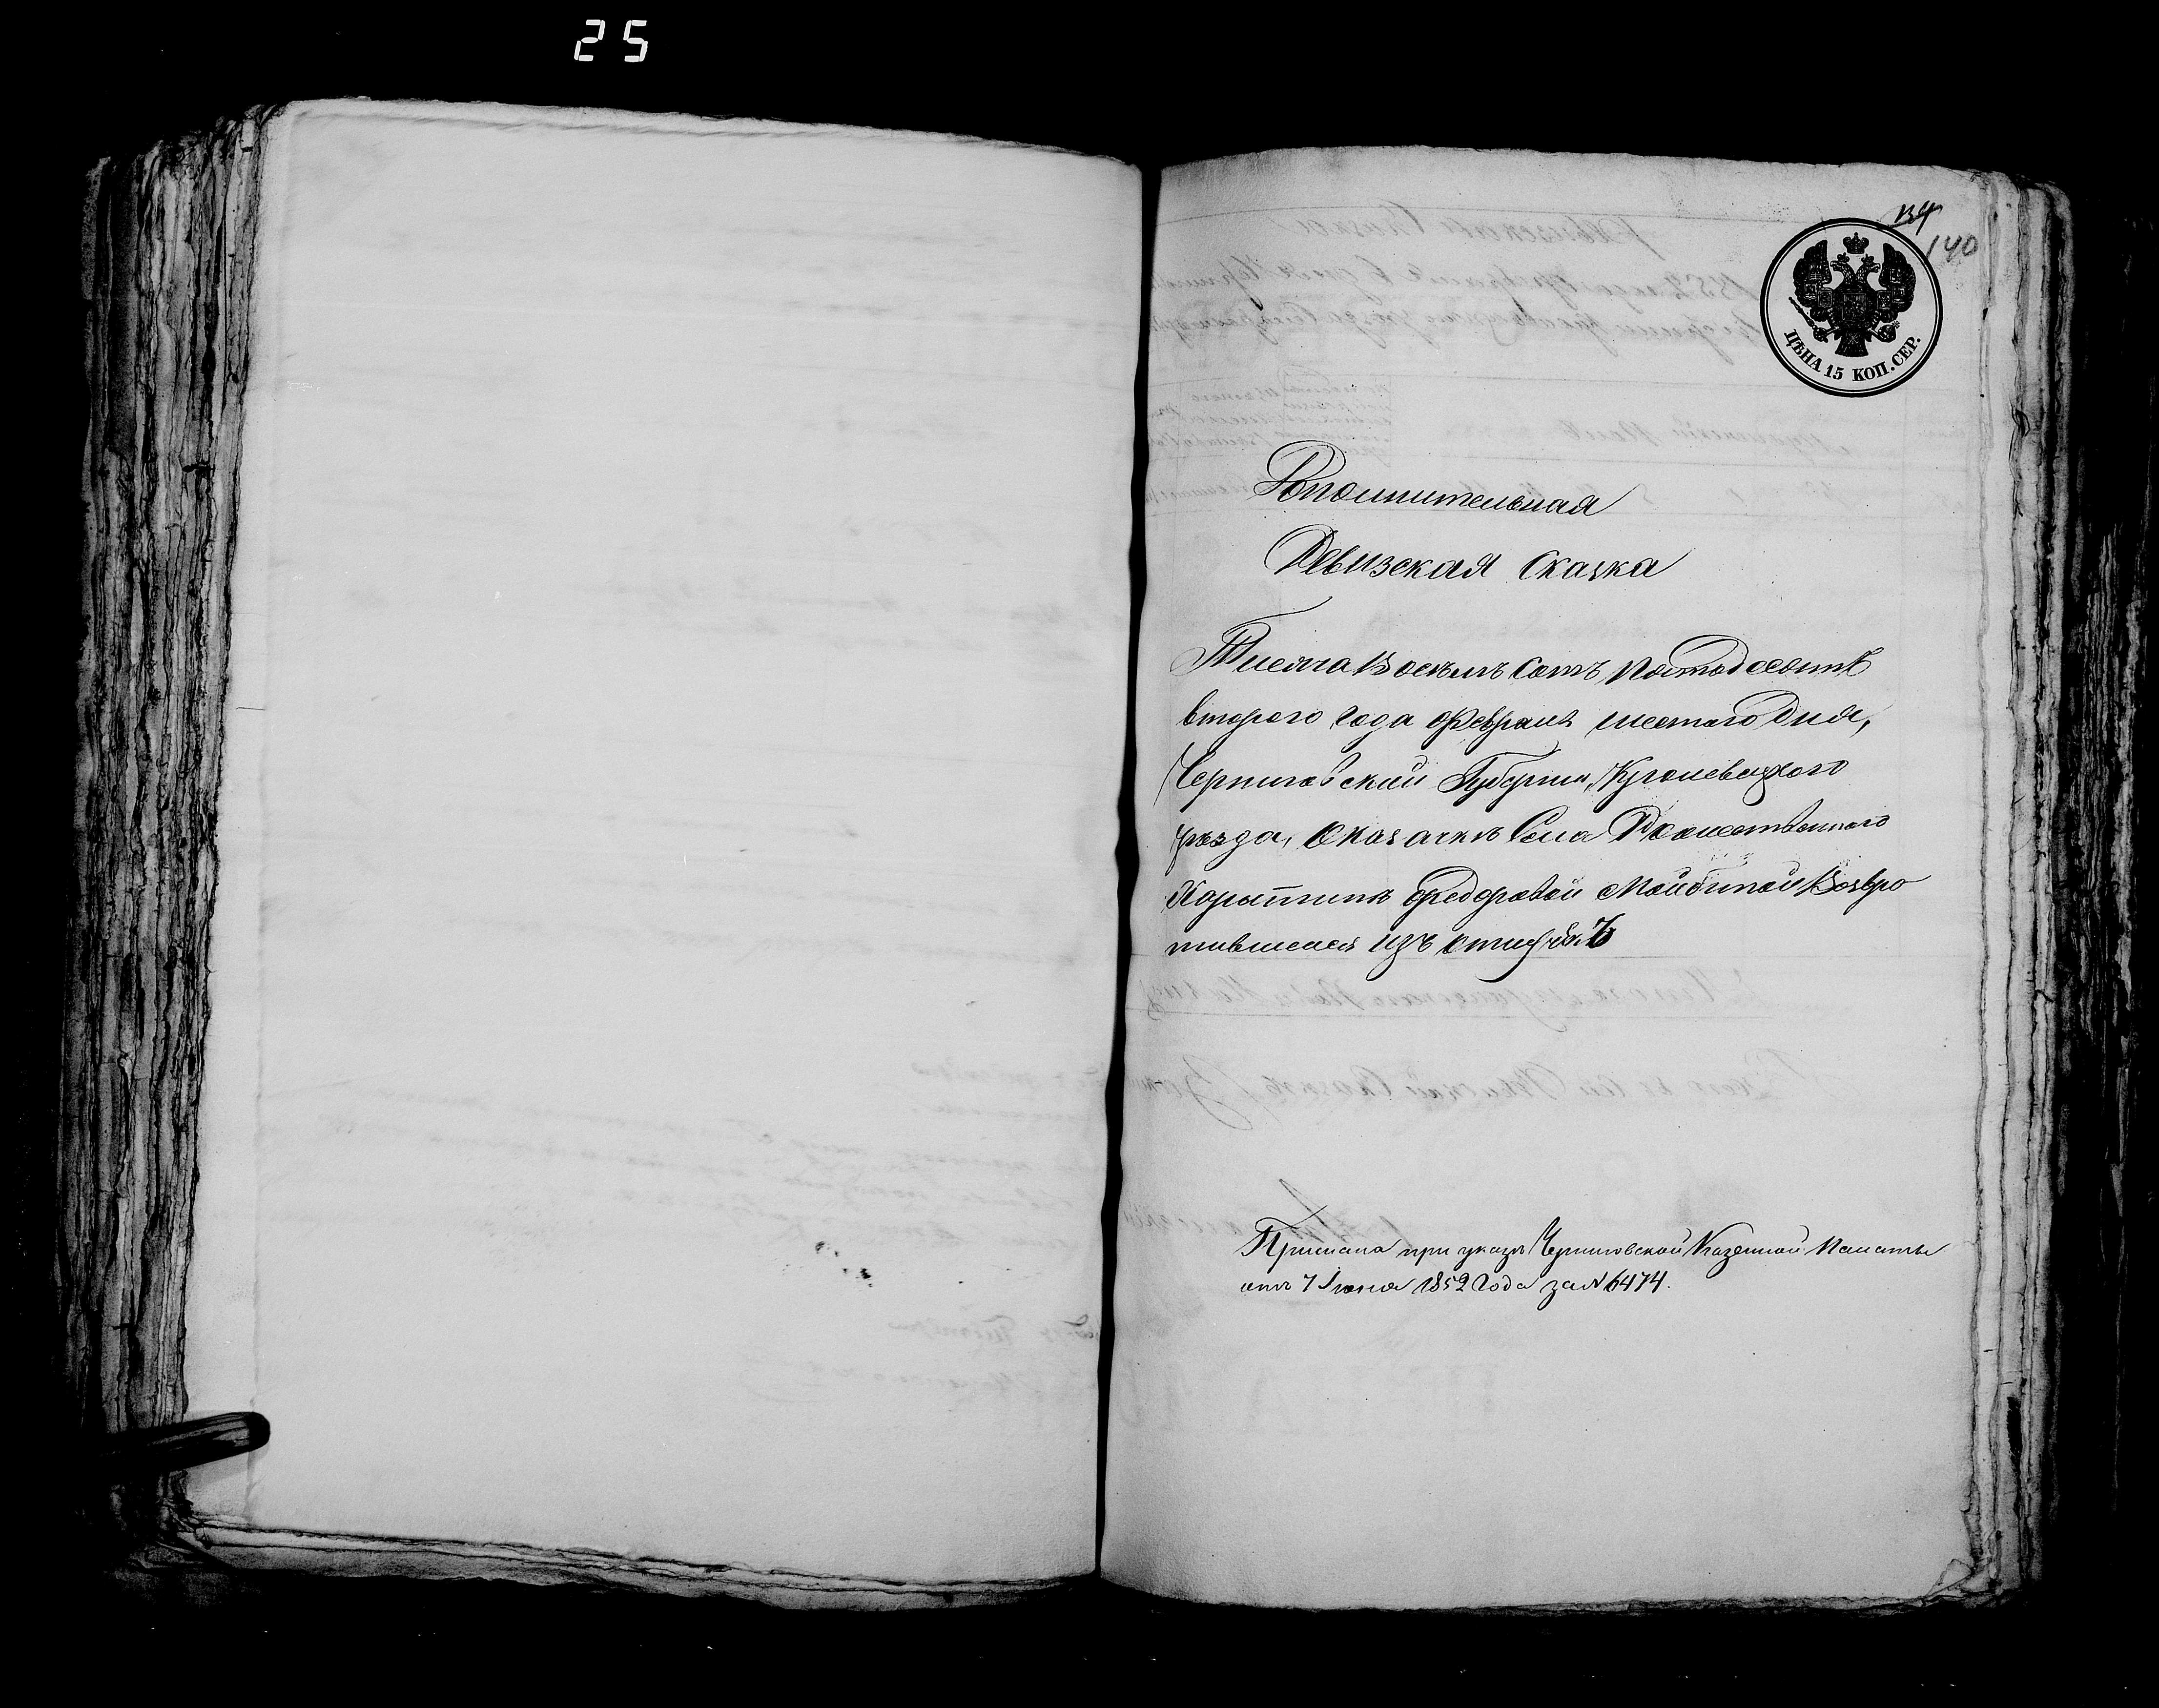 25
134
140
ЦѢНА 15 КОП. СЕР.
Дополнительная
Ревизская Сказка
Тысяча Восемь сотъ пятьдесятъ
втораго года Февраля шестаго дня,
Черниговской Губернии, Кролевецкаго
уѣзда, О казачкѣ Села Рожественнаго
Федоровой Возвро
тившейся изъ
Прислана при указѣ Черниговской Казенной Палаты
отъ 7 Июня 1852 года за № 6474.